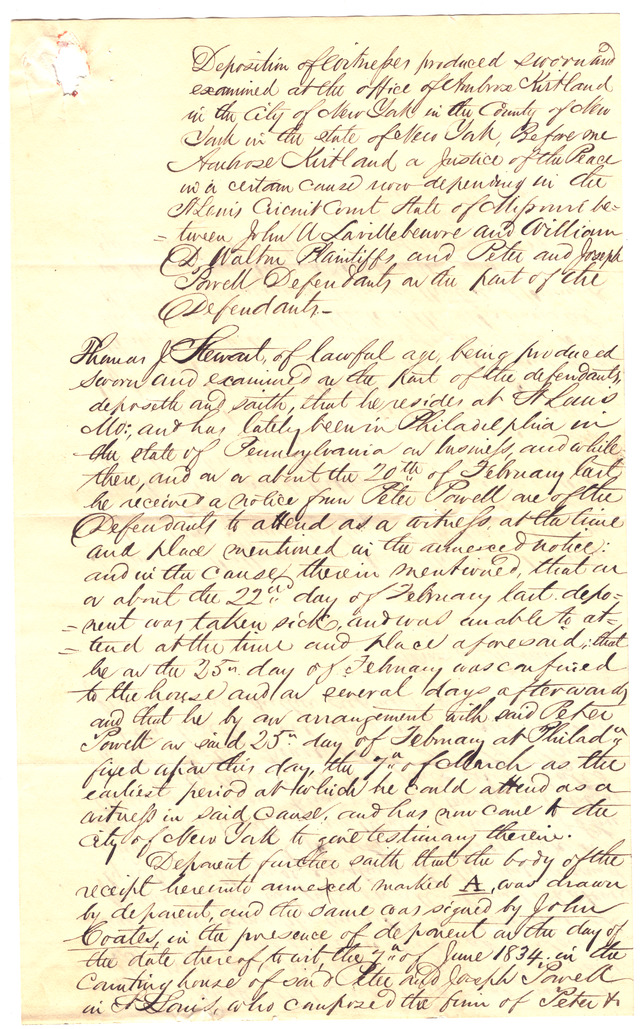 Deposition of witnesses produced sworn and
examined at the office of Ambrose Kirtland
in the City of New York in the County of New
York in the state of New York, Before me
Ambrose Kirtland a Justice of the Peace
in a certain cause now depending in the
St Louis Circuit Court State of Missouri be-
=tween John A Lavillebeuvre and William
D Walton Plaintiffs and Peter and Joseph
Powell Defendants on the part of the
Defendants.-
Thomas J Stewart, of lawful age, being produced
sworn and examined on the part of the defendants,
deposeth and saith, that he resides at St Louis
Mo; and has lately been in Philadelphia in
the state of Pennsylvania on business, and while
there, and on or about the 20th of February last
he received a notice from Peter Powell one of the
Defendants to attend as a witness, at the time
and place mentioned in the annexed notice:
and in the cause, therein mentioned, that on
or about the 22nd day of February last depo-
=nent was taken sick, and was unable to at-
=tend at the time and place aforesaid; that
he on the 25th day of February was confined
to the house and on several days afterwards
and that he by an arrangement with said Peter
Powell on said 25th day of February at Philada
fixed upon this day, the 7th of March as the
earliest period at which he could attend as a
witness in said cause, and has now come to the
city of New York to give testimony therein.
Deponent further saith that the body of the
receipt hereunto annexed marked A, was drawn
by deponent, and the same was signed by John
Coates, in the presence of deponent on the day of
the date thereof, to wit, the 7th of June 1834, in the
Counting house of said Peter and Joseph Powell
in St Louis, who composed the firm of Peter &